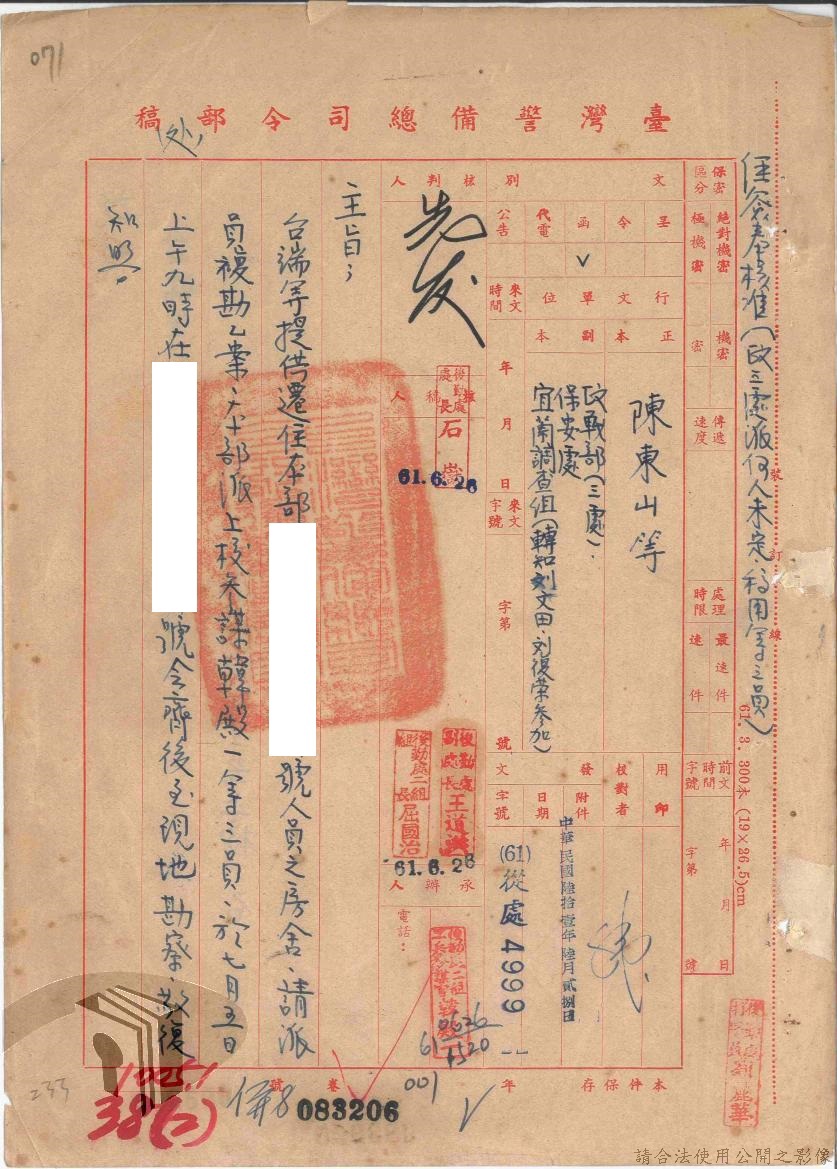 071
臺灣警備總司令部稿
(处)
任容奉核准(政三處派何人未定、稿用等三員)
裝訂線
61. 3. 300本 (19×26.5)cm
保密區分
絕對機密
極機密
機密
密
傳遞速度
處理時限
最速件
速件
前文時間字號
年月日
字第 號
文別
呈
令
函 ˇ
代電
公告
行文單位
正本
副本
陳東山等
政戰部(三處)、
保安處
宜蘭調查組(轉知刘文田、刘復荣參加)
來文時間
年月日
來文字號
字第 號
用印
校對者
發文
附件
日期
字號
中華民國陸拾壹年陸月貳捌日
(61)從處4999
核判人
先发
擬稿人
後勤處處長石嵩
61.6.28
後勤處副處長王道洪
後勤處二組組長屈國治
61.6.28
承辦人
電話:
0626
1520
61
主旨:
台端等提供遷住本部
號人員之房舍、請派
員複勘乙案、本部派上校參謀韓殿一等三員、於七月五日
上午九時在
號会齊後至現地勘察、敬復
知照。
本件保存 年
卷 號
001
083206
併8
1025.1
38(二)
233
請合法使用公開之影像